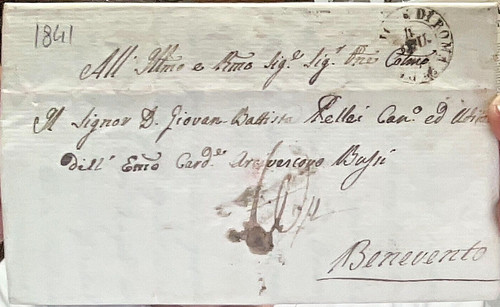 1841
DI ROMA
All' Illmo e Rmo Sigr Sigr Pne Colmo
Il Signor D. Giovan Battista Pellei Cano ed Udit
dell' Emo Cardle Arcivescovo Bussi
Benevento